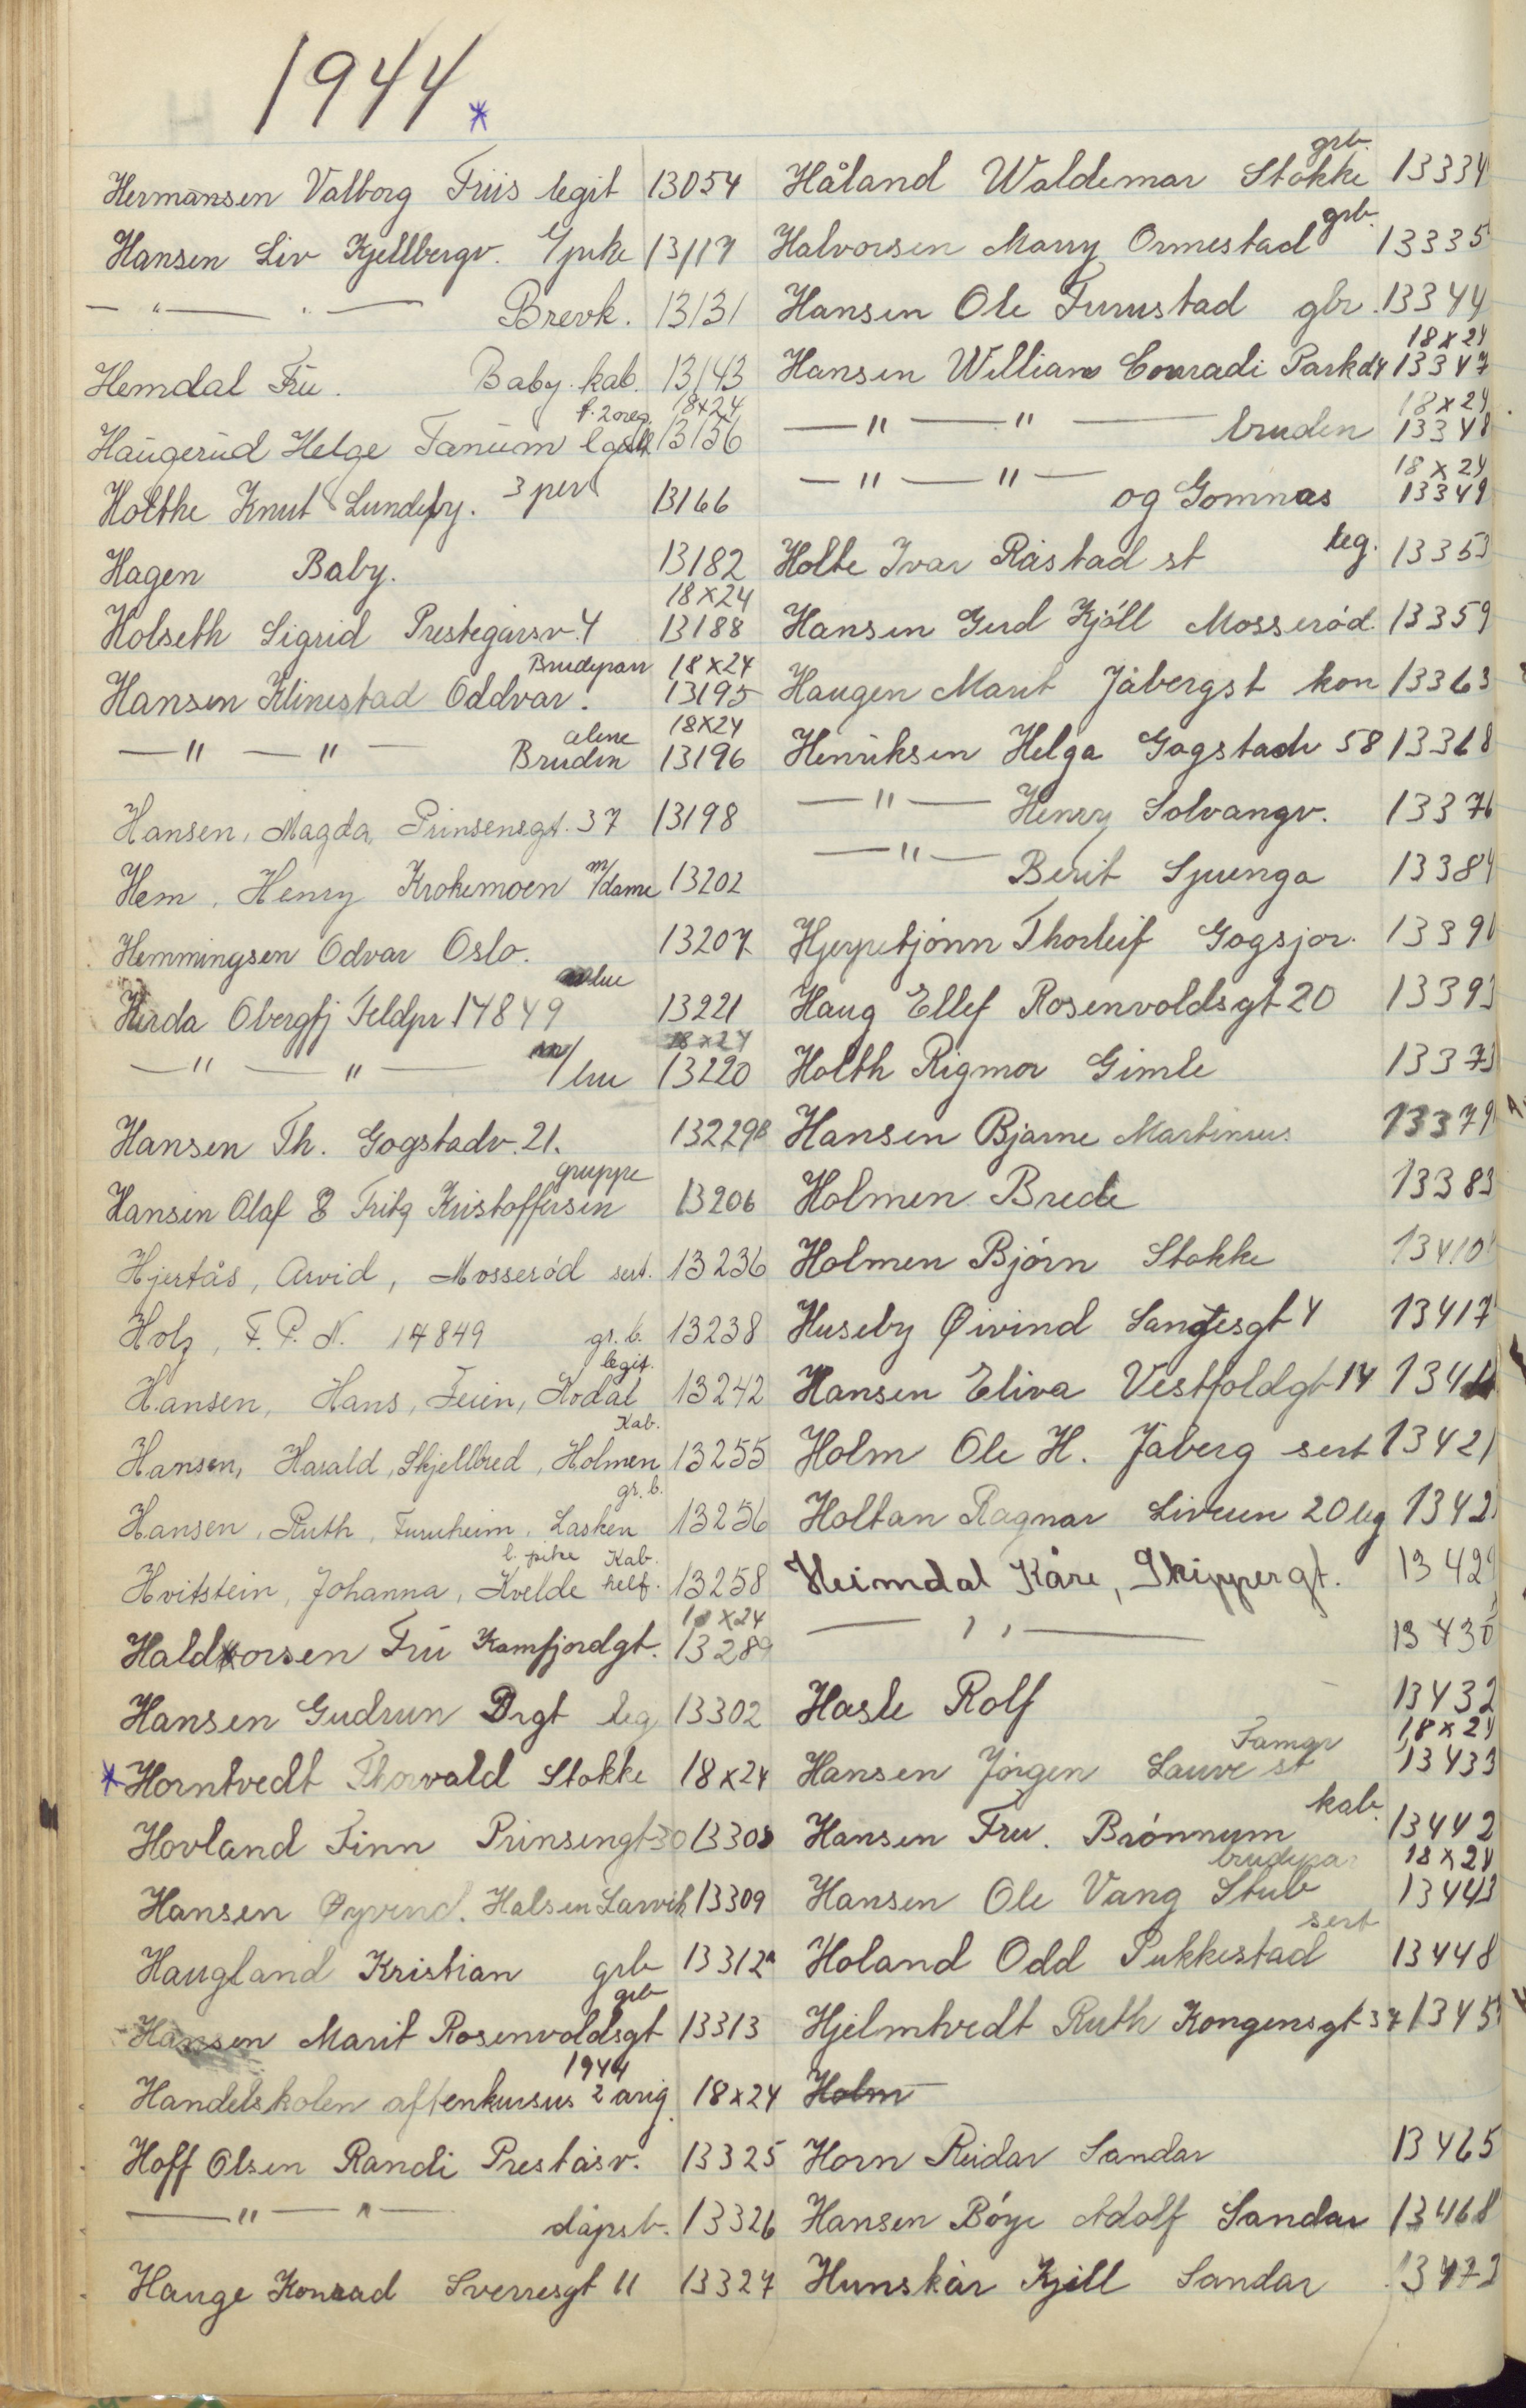 1944 *
Hermansen Valborg Friis legit 13054
Hansen Liv Kjellbergv. 13117
— " — " — Brevk. 13131
Hemdal Fru. Baby. kab. 13143
18x24
Haugerud Helge Fanum 13156
Holthe Knut Lundeby. 3 pers 13166
Hagen Baby. 13182
18x24
Holseth Sigrid Prestegårsv. 4 13188
Brudepar 18x24
Hansen Klinestad Oddvar. 13195
alene 18x24
— " — " — Bruden 13196
Hansen, Magda, Prinsensgt. 37 13198
Hem, Henry Krokemoen m/dame 13202
Hemmingsen Odvar Oslo. 13207
Hirda Obergfj Feldpr 17849 13221
18x24
— " — " — m/ 13220
Hansen Th. Gogstadv. 21. 13229B
gruppe
Hansen Olaf & Fritz Kristoffersen 13206
Hjertås, Arvid, Mosserød sert. 13236
Holz, F. P. N. 17849 gr. b. 13238
legit.
Hansen, Hans, Feien, Kodal 13242
Kab.
Hansen, Harald, Skjellbred, Holmen 13255
gr. b.
Hansen, Ruth, Furuheim, Lasken 13256
l. pike Kab.
Hvitstein, Johanna, Kvelde helf. 13258
18x24
Haldvorsen Fru Kamfjordgt. 13289
Hansen Gudrun Drgt leg 13302
* Horntvedt Thorvald Stokke 18x24
Hovland Finn Prinsengt 30 13308
Hansen Øyvind. Halsen Larvik 13309
Haugland Kristian grb 13312a
grb
Hansen Marit Rosenvoldsgt 13313
1944
Handelskolen aftenkursus 2 årig. 18x24
Hoff Olsen Randi Preståsv. 13325
— " — " — dåpsb. 13326
Hauge Konrad Sverresgt 11 13327
grb.
Håland Waldemar Stokke 13334
grb.
Halvorsen Marry Ormestad 13335
Hansen Ole Furustad gbr. 13344
18x24
Hansen William Conradi Parkd4 13347
18x24
— " — " — bruden 13348
18x24
— " — " — og Gomnæs 13349
Holte Ivar Råstad st leg. 13353
Hansen Gerd Kjøll Mosserød. 13359
Haugen Marit Jåbergst kon 13363
Henriksen Helga Gogstadv 58 13368
— " — Henry Solvangv. 13376
— " — Berit Spuenga 13384
Hjerpetjønn Thorleif Gogsjor. 13391
Haug Ellef Rosenvoldsgt 20 13393
Holth Rigmor Gimle 13373
Hansen Bjarne Martinius 13379
Holmen Brede 13383
Holmen Bjørn Stokke 13410
Huseby Øivind Langesgt 4 13417
Hansen Eliva Vestfoldgt 14
Holm Ole H. Jåberg sert 13421
Holtan Ragnar Liveien 20 leg 1342
Heimdal Kåre, Skippergt. 13429
— " — 13430
Hasle Rolf 13432
Famgr 18x24
Hansen Jørgen Lauve st 13433
kab.
Hansen Fru. Brønnum 13442
brudepar 18x24
Hansen Ole Vang Stub 13443
sert
Holand Odd Pukkestad 13448
Hjelmtvedt Ruth Kongensgt 37 1345
Holm
Horn Reidar Sandar 13465
Hansen Bøye Adolf Sandar 13468
Hunskår Kjell Sandar 13472